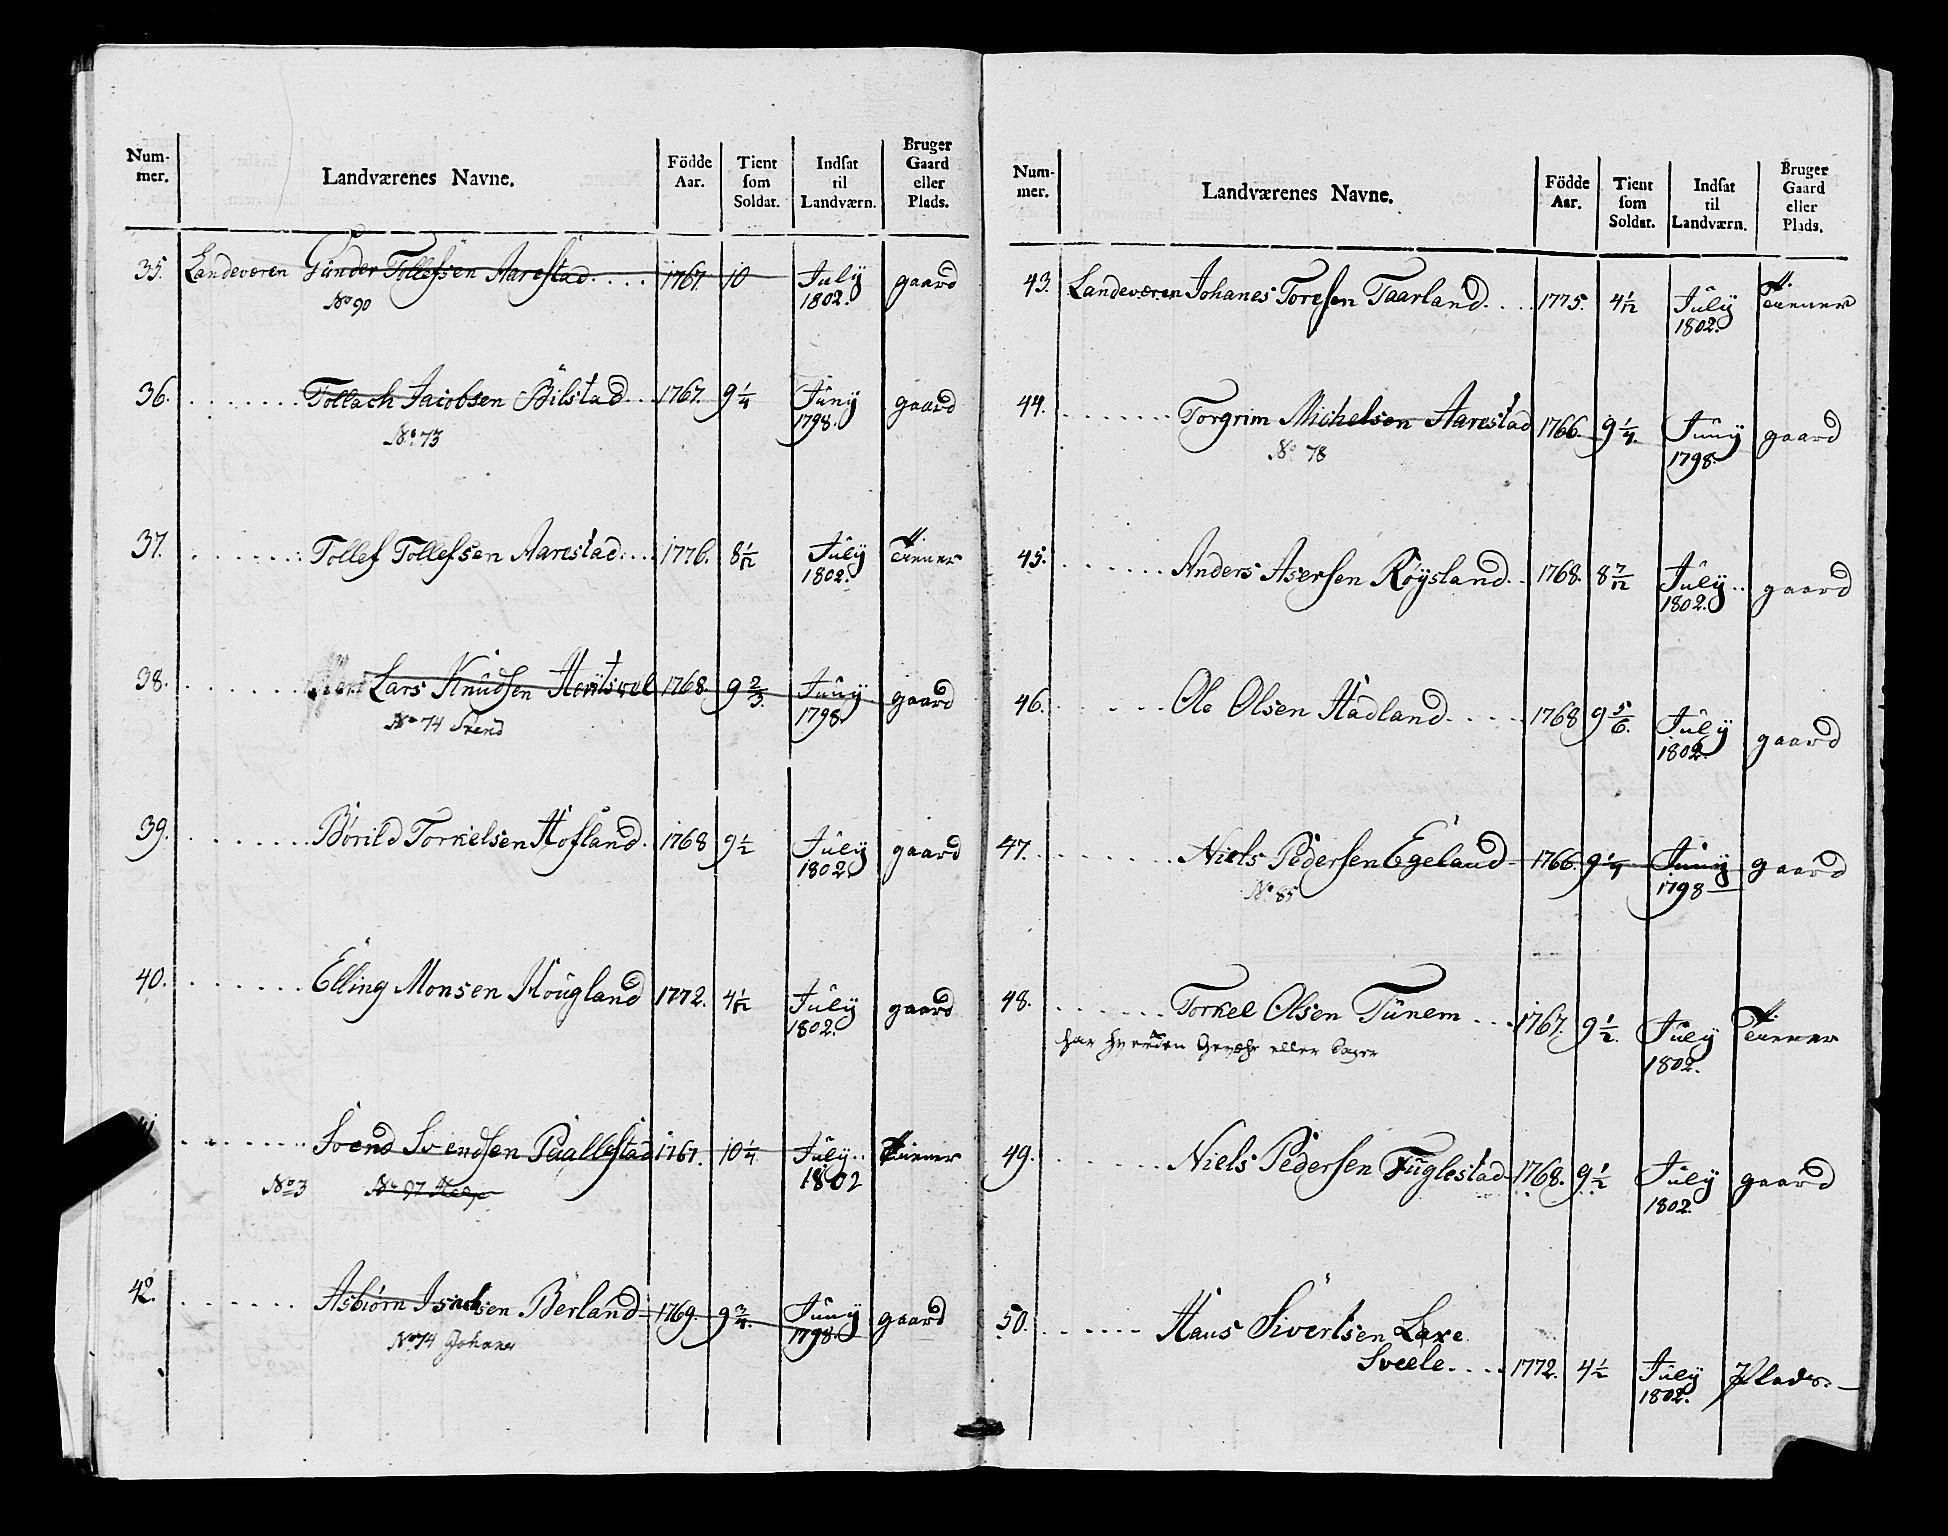 Num-mer. Landværenes Navne. Födde Aar. Tient som Soldat. Indsat til Landværn. Bruger Gaard eller Plads.
35. Landeværen Gunder Tollefsen Aarestad.... 1767. 10 July 1802. gaard
No 90
36. Tollach Jacobsen Bilstad... 1767. 9 1/4 Juny 1798. gaard
No. 73
37. Tollef Tollefsen Aarestad.... 1776. 8 1/12 July 1802. Tiener
38. Lars Knudsen 1768. 9 2/3. Juny 1798 gaard
No 74 Svend
39. Börild Torkelsen Hofland. 1768 9 1/2 July 1802 gaard
40. Elling Monsen Hougland 1772. 4 1/12 July 1802. gaard
Svend Svendsen Paallestad 1767. 10 1/4 July.. 1802 Tiener
No 3 No 97
42. Asbiørn Isachsen Berland 1769. 9 3/4. Juny 1798. gaard
No 74 Johanes
Num-mer. Landværenes Navne. Födde Aar. Tient som Soldat. Indsat til Landværn. Bruger Gaard eller Plads.
43. Landeværen Johanes Toresen Taarland.... 1775. 4 1/12 July 1802. Tiener
44. Torgrim Michelsen Aarestad 1766. 9 1/4. Juny 1798. gaard
No 78
45. Anders Asersen Röysland.. 1768. 8 7/12 July.. 1802. gaard
46. Ole Olsen Hadland..... 1768 9 5/6. July 1802. gaard
47. Niels Pedersen Egeland 1766. 9 1/4 Juny 1798 gaard
No. 85
48. Torkel Olsen Tunem... 1767. 9 1/2. July 1802. Tiener
har hverken Gevæhr eller
49. Niels Pedersen Fuglestad 1768. 9 1/2 July 1802. gaard
50. Hans Sivertsen Laxe
Sveele.... 1772. 4 1/2 July 1802. Plads.